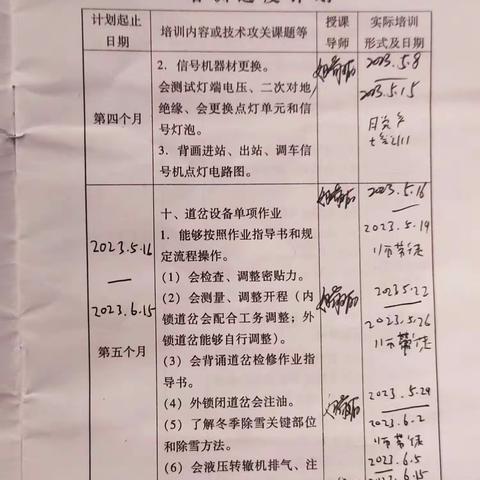 培训进度计划
计划起止
日期
培训内容或技术攻关课题等
授课
导师
实际培训
形式及日期
第四个月
2. 信号机器材更换。
会测试灯端电压、二次对地
绝缘、会更换点灯单元和信
号灯泡。
3. 背画进站、出站、调车信
号机点灯电路图。
2023.5.8
2023.5.15
2023.5.16
2023.6.15
第五个月
十、道岔设备单项作业
1. 能够按照作业指导书和规
定流程操作。
(1) 会检查、调整密贴力。
(2) 会测量、调整开程（内
锁道岔会配合工务调整；外
锁道岔能够自行调整）。
(3) 会背诵道岔检修作业指
导书。
(4) 外锁闭道岔会注油。
(5) 了解冬季除雪关键部位
和除雪方法。
(6) 会液压转辙机排气、注
2023.5.16
2023.5.19
2023.5.22
2023.5.26
2023.5.29
2023.6.2
2023.6.5